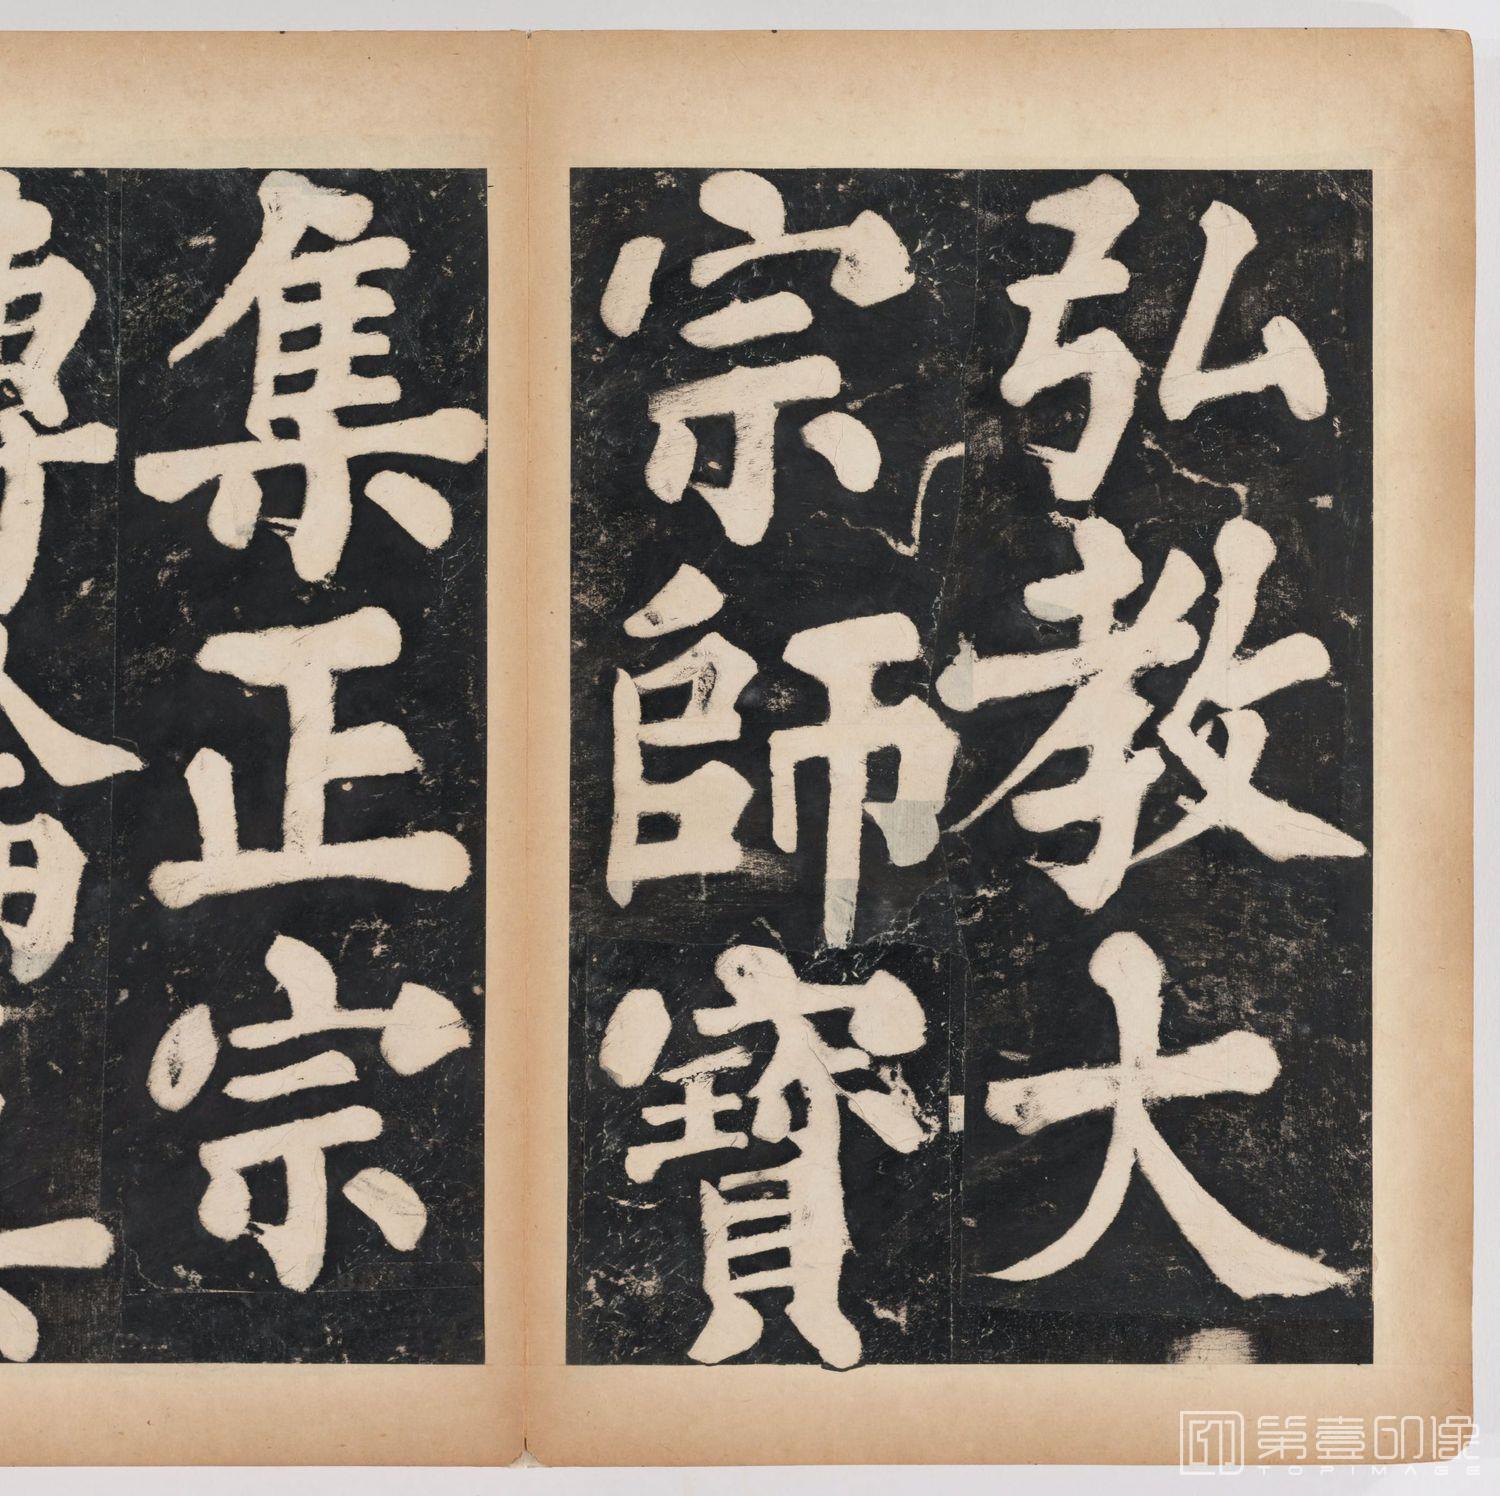 弘教大
宗師寶
集正宗
第壹印像
TOPIMAGE